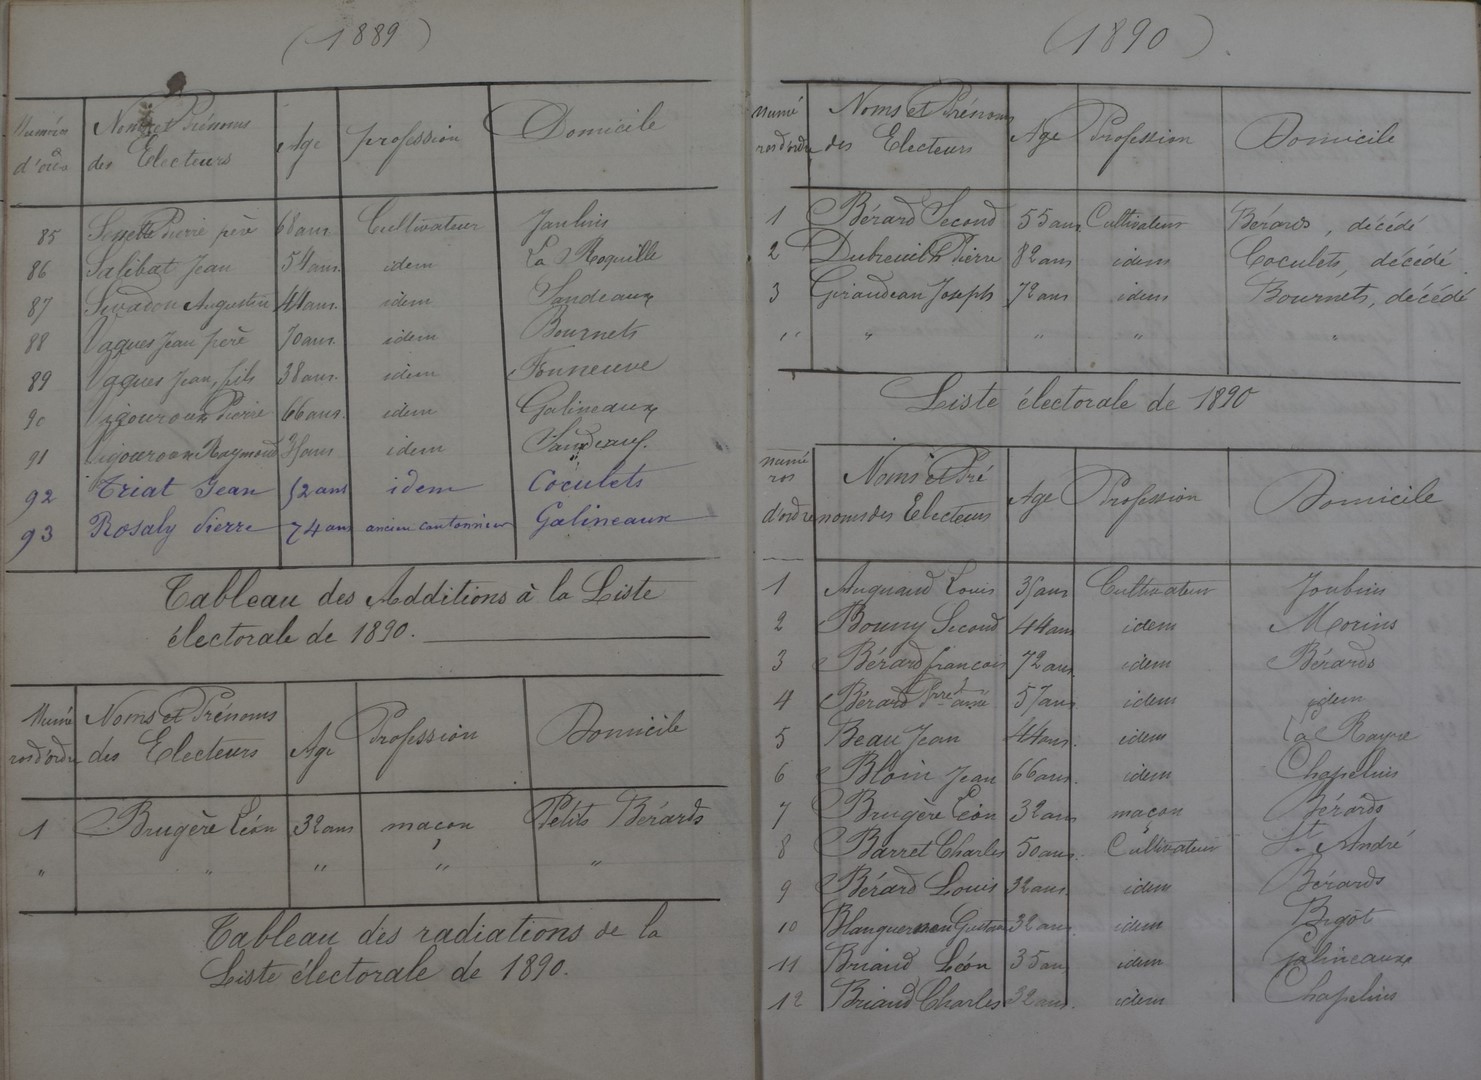 (1889)
Numéro Noms et Prénoms Age profession Domicile
d'ordre des Electeurs
85 Pierre père 68 ans Cultivateur Jaubins
86 Salibat Jean 54 ans idem La Roquille
87 Sivadon Augustin 44 ans. idem Sandeaux
88 Vaques Jean père 70 ans. idem Bournets
89 Vaques Jean, fils 38 ans. idem Fonneuve
90 Vigouroux Pierre 66 ans. idem Galineaux
91 Vigouroux Raymond 35 ans idem Sandeaux.
92 Triat Jean 52 ans idem Coculets
93 Rosaly Pierre 74 ans ancien cantonnier Galineaux
Tableau des Additions à la Liste
électorale de 1890.
Numé Noms et Prénoms Age Profession Domicile
ros d'ordre des Electeurs
1 Brugère Léon 32 ans maçon Petits Bérards
" " " " "
Tableau des radiations de la
Liste électorale de 1890.
(1890)
Numé Noms et Prénoms Age Profession Domicile
ros d'ordre des Electeurs
1 Bérard Second 55 ans Cultivateur Bérards, décédé
2 Dubreuilh Pierre 82 ans idem Coculets, décédé
3 Giraudeau Joseph 72 ans idem Bournets, décédé
" " " " "
Liste électorale de 1890
Numé Noms et Pré Age Profession Domicile
ros
d'ordre noms des Electeurs
1 Louis 35 ans Cultivateur Joubins
2 Bouny Second 44 ans idem Morins
3 Bérard françois 72 ans idem Bérards
4 Bérard Pierre ainé 57 ans idem idem
5 Beau Jean 44 ans. idem La Rayre
6 Bloin Jean 66 ans. idem Chapelins
7 Brugère Léon 32 ans maçon Bérards
8 Barret Charles 50 ans. Cultivateur St. André
9 Bérard Louis 32 ans. idem Bérards
10 Gustave 32 ans. idem Bigôt
11 Briand Léon 35 ans idem Galineaux
12 Briand Charles 32 ans. idem Chapelins